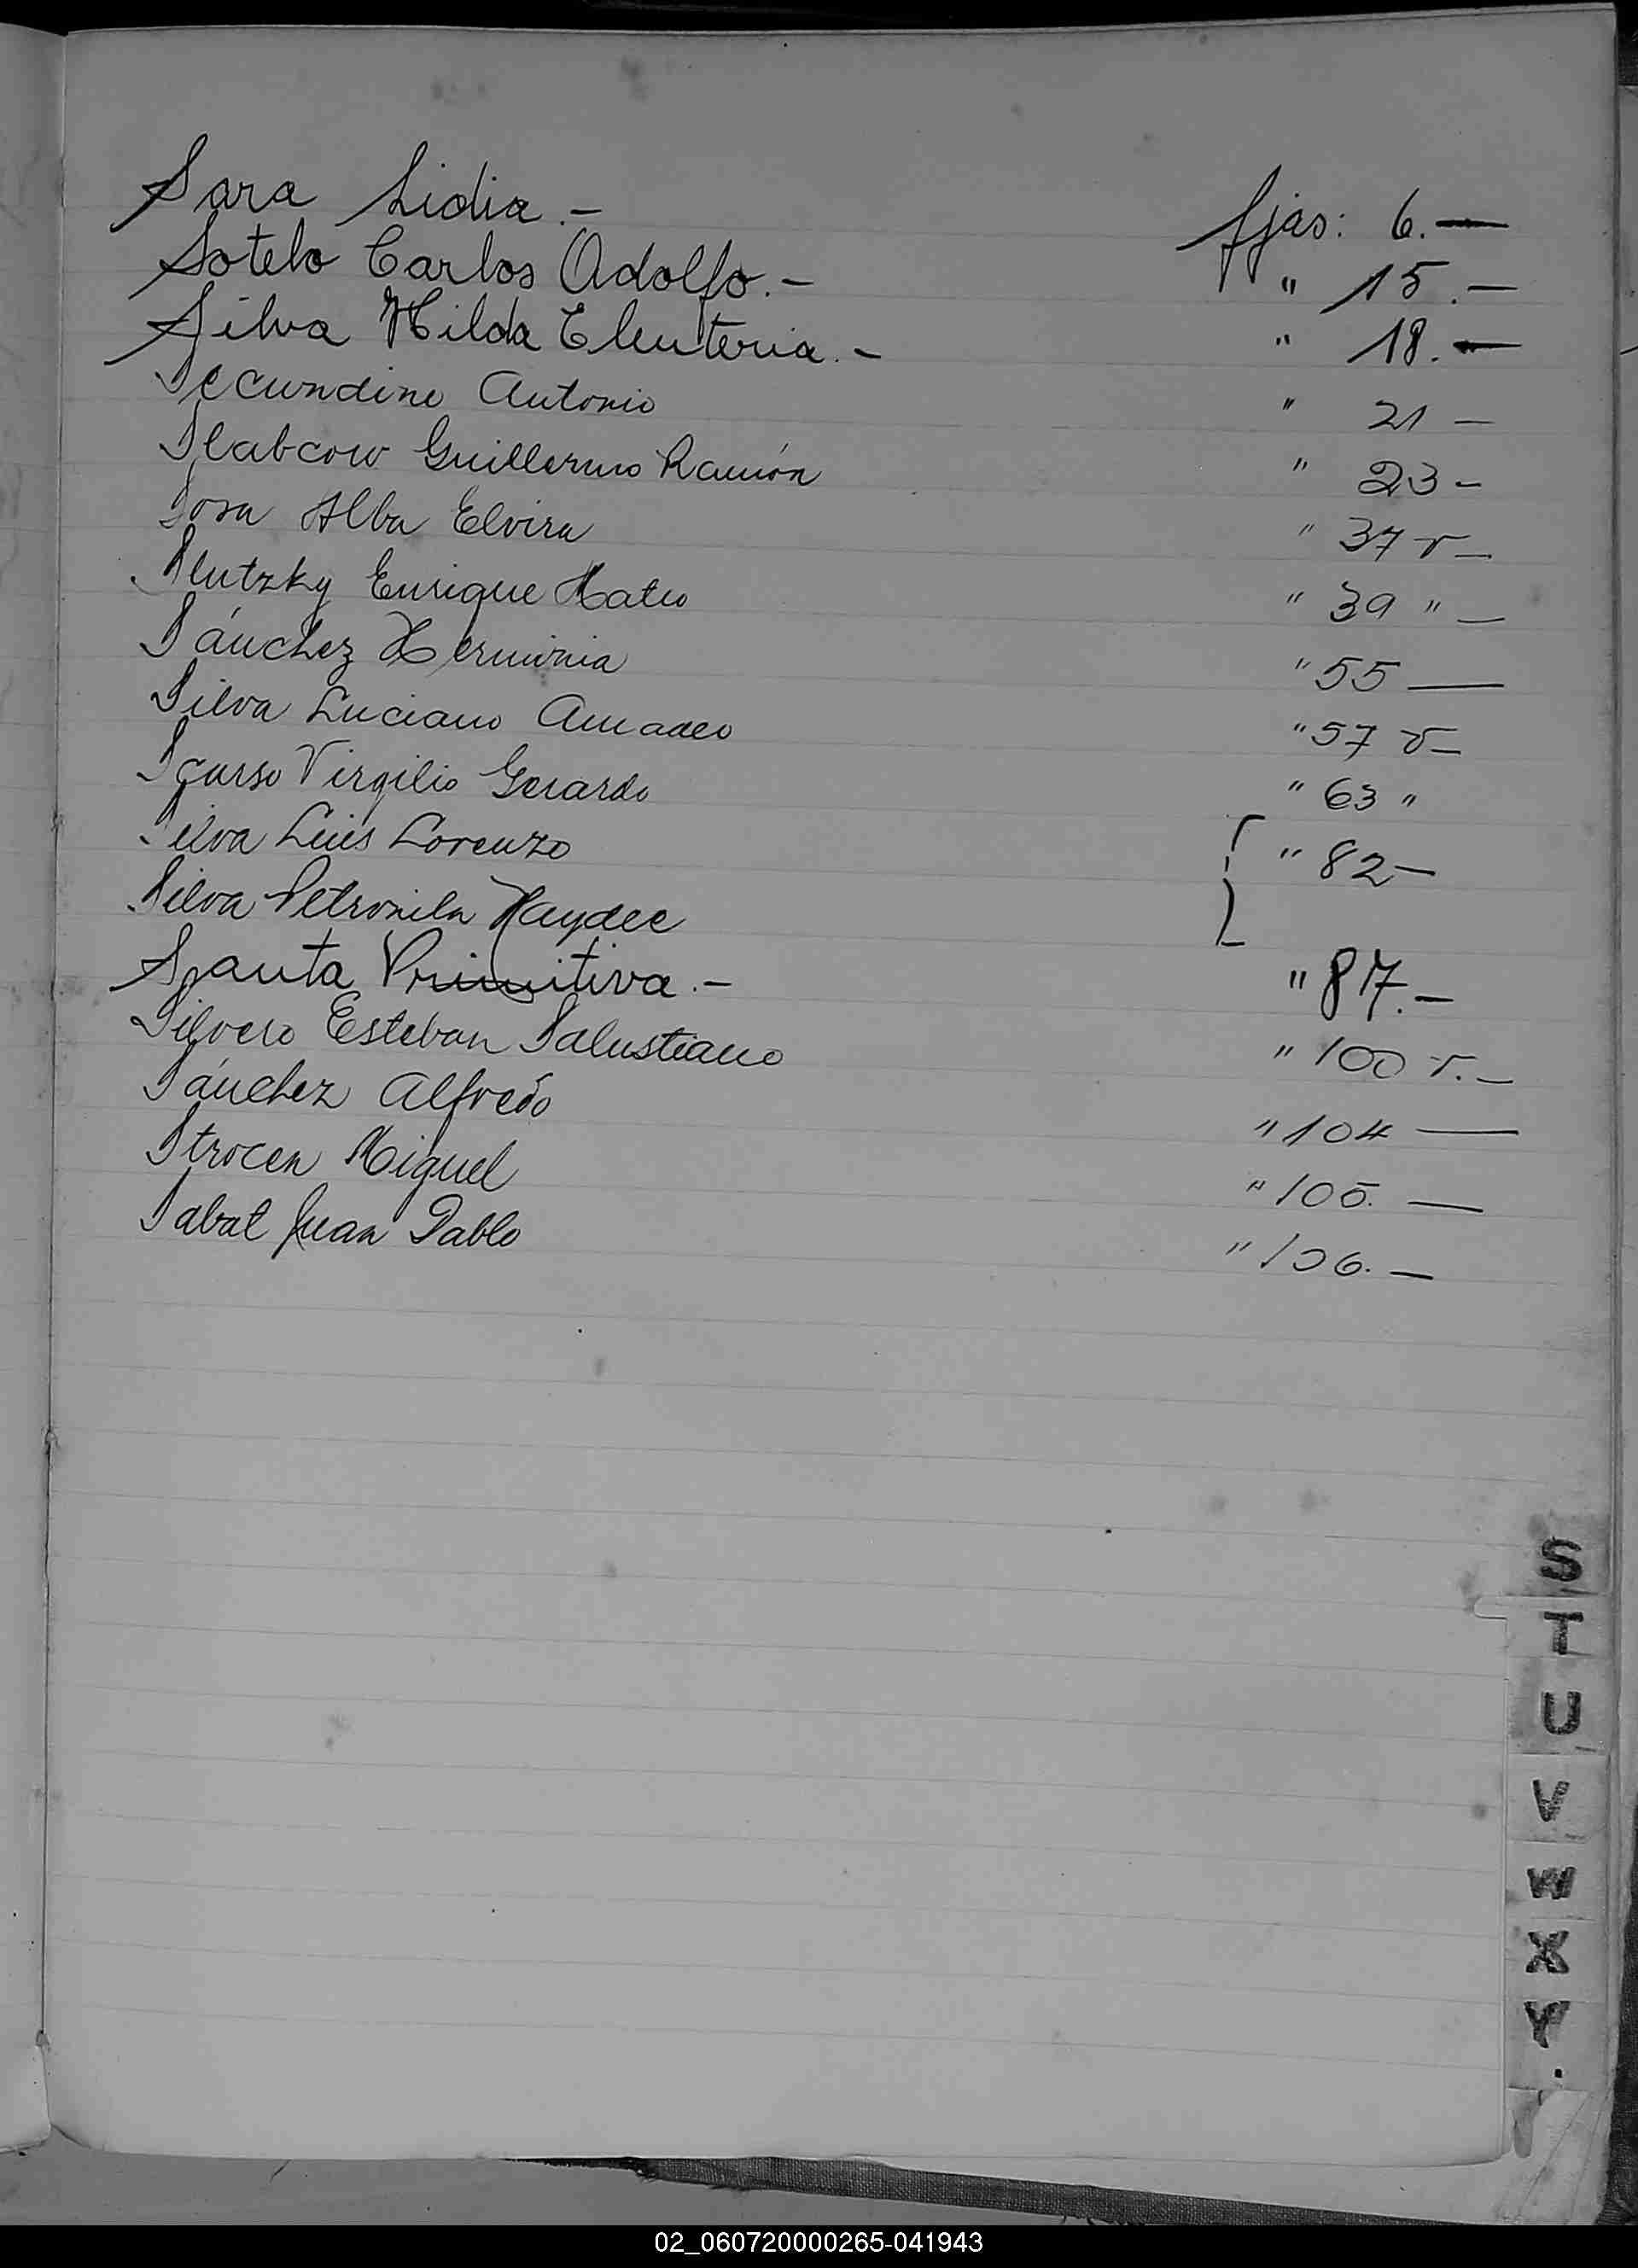 Sara Lidia.- fjas: 6.—
Sotelo Carlos Adolfo.- " 15.—
Silva Hilda Eleuteria.- " 18.—
Secundino Antonio " 21 —
Slabcow Guillermo Ramón " 23 -
Sosa Alba Elvira " 37 v —
Slutzky Enrique Mateo " 39 " —
Sánchez Herminia " 55 —
Silva Luciano Amadeo " 57 v —
Scurso Virgilio Gerardo " 63 "
Silva Luis Lorenzo " 82 —
Silva Petronila Haydee
Santa Primitiva.- " 87.—
Silvero Esteban Salustiano " 100 v.—
Sánchez Alfredo " 104 —
Strocen Miguel " 105. —
Sabat Juan Pablo " 106. —
S
T
U
V
W
X
Y
02_060720000265-041943